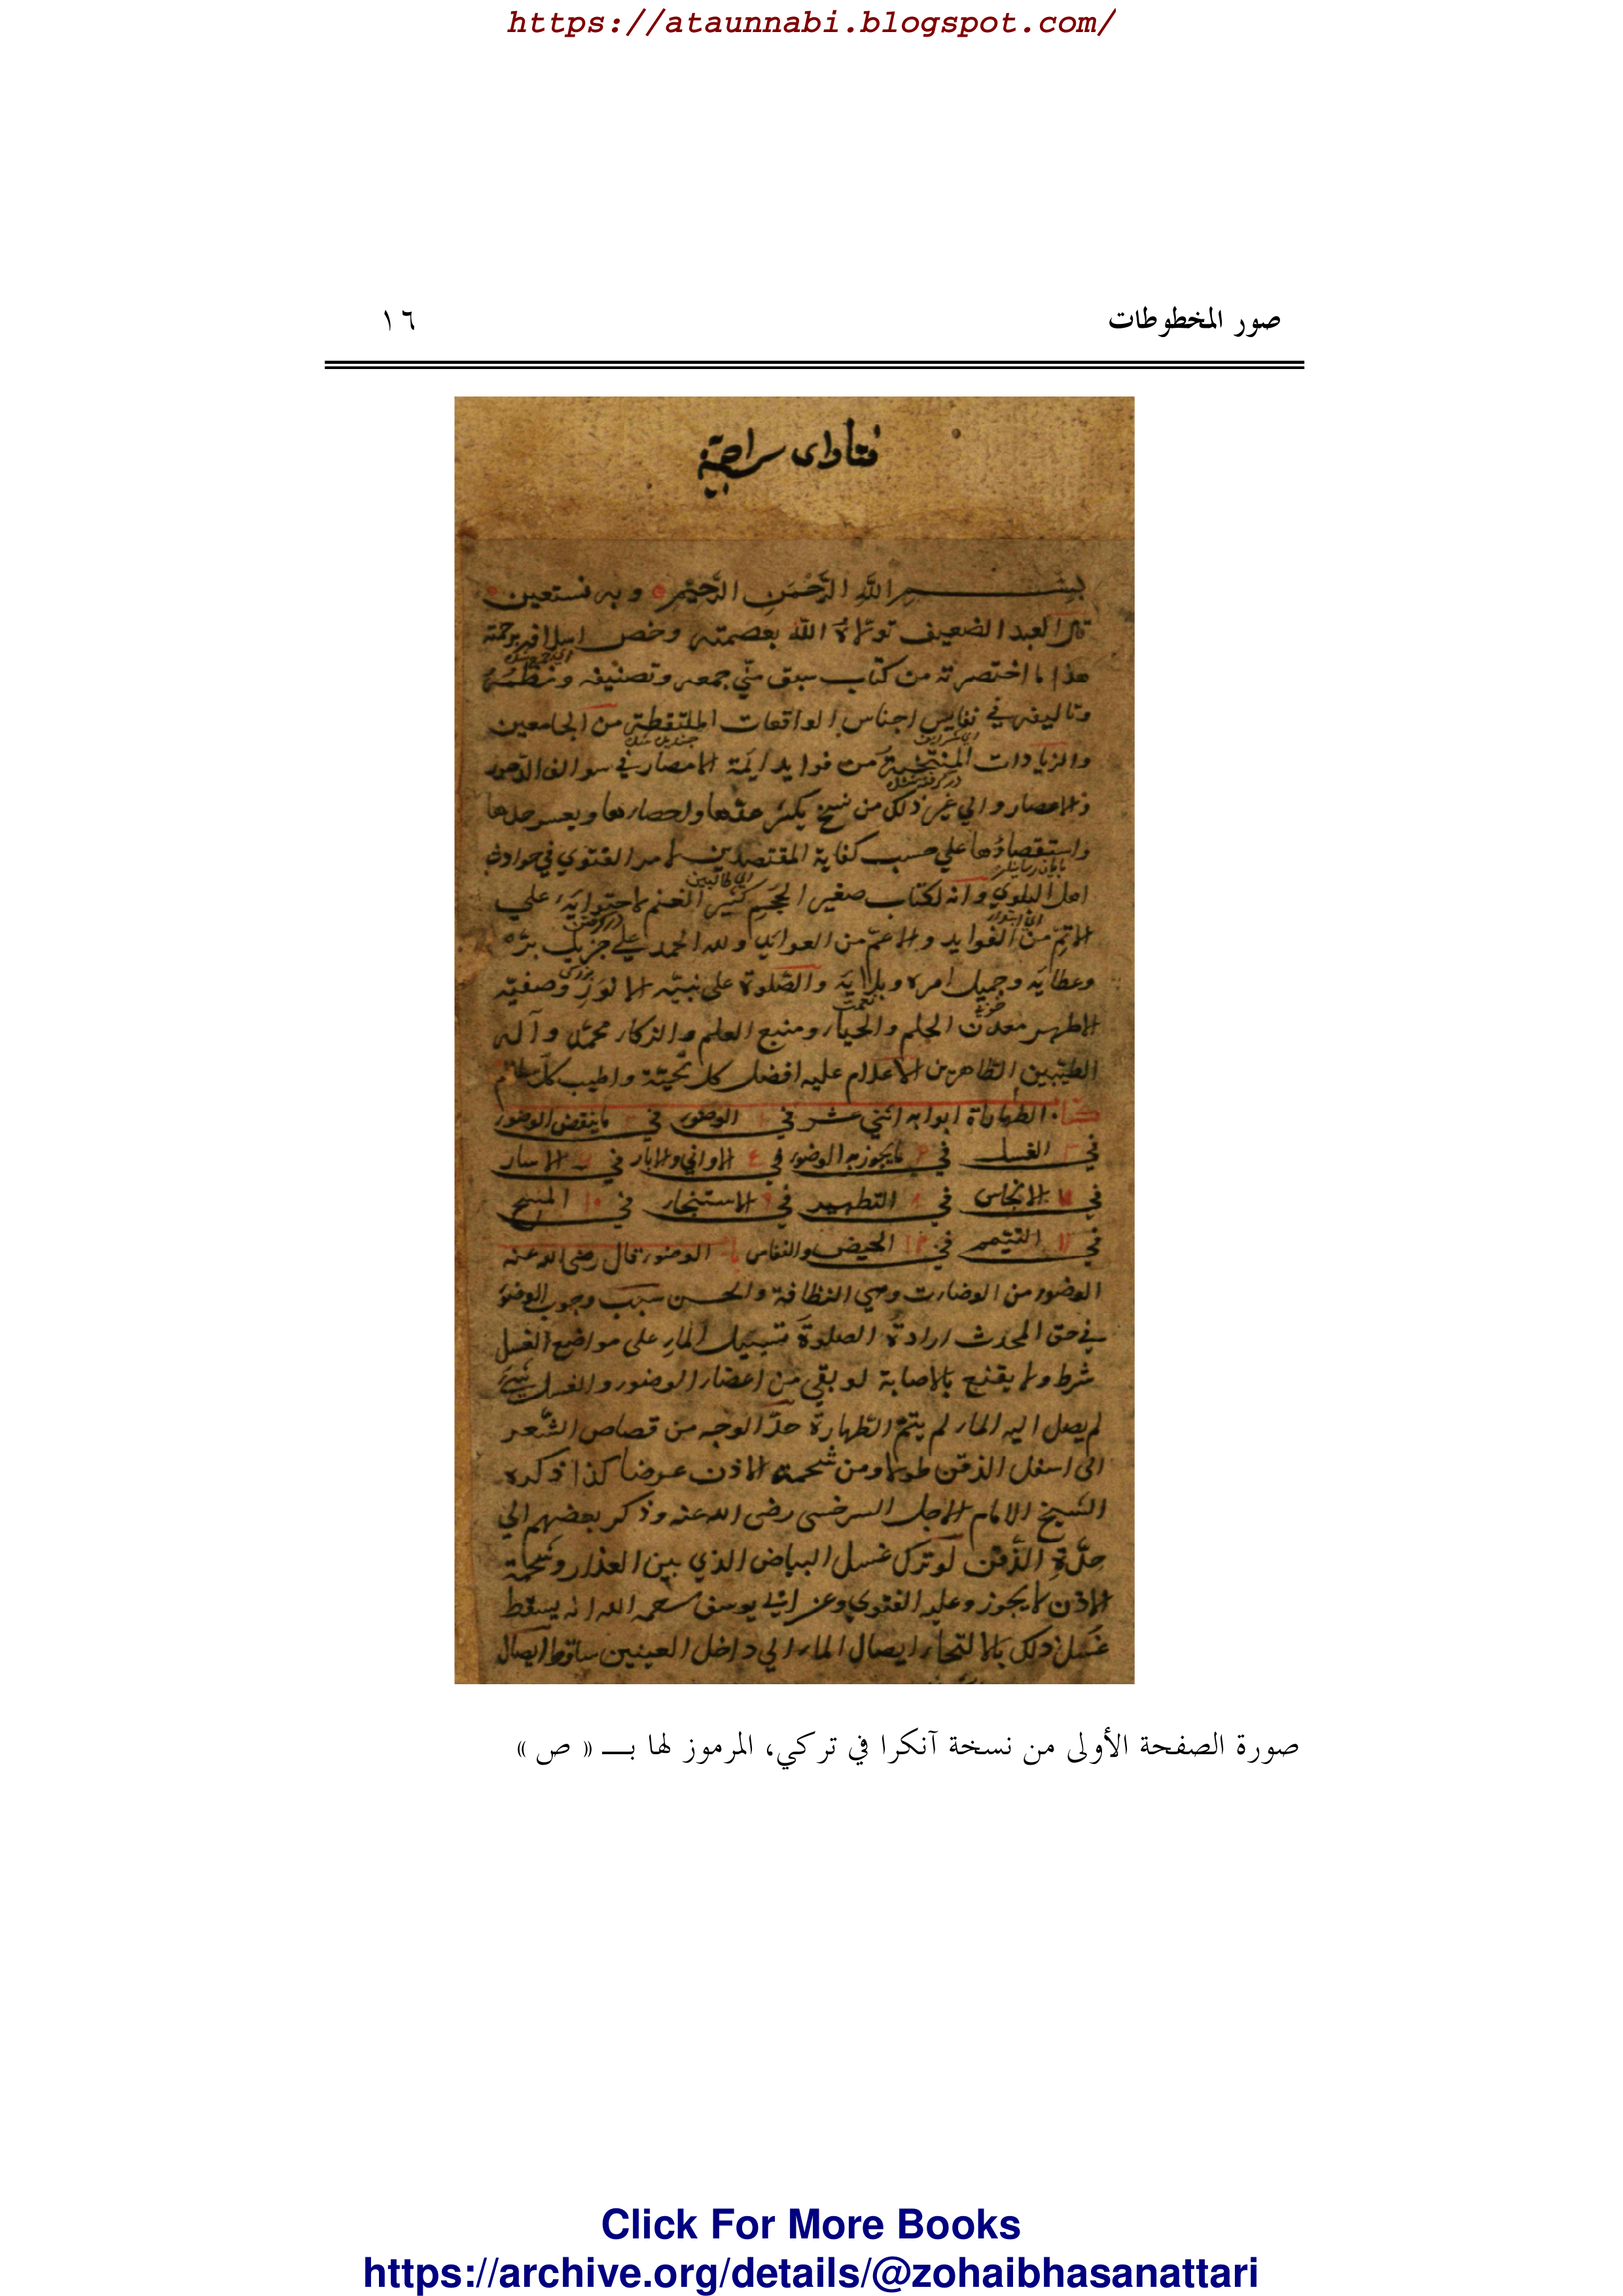 https://ataunnabi.blogspot.com/
صور المخطوطات ١٦
فتاوای سراجية
بِسْمِ اللَّهِ الرَّحْمَنِ الرَّحِيْمِ وبه نستعين
قال العبد الضعيف تولاه اللّٰه بعصمته وخص اسلافه برحمته
هذا ما اختصرته من كتاب سبق منّي جمعه وتصنيفه ونظمه
وتاليفه في نفايس اجناس الواقعات الملتقطة من الجامعين
والزيادات المنتخبة من فوايد ايمة الامصار في سوالف الدهور
والاعصار والي غير ذلك من نسخ يكثر عدها واحصارها ويعسر حلها
واستقصاؤها علي حسب كفاية المقتصدين لامر الفتوي في حوادث
اهل البلوي وانه لكتاب صغير الحجم كثير الغنم لاحتوايه علي
الاتمّ من الفوايد والاعمّ من العوائد ولله الحمد علي جزيل برّه
وعطايه وجميل امره وبلايه والصّلوة على نبيّه الانور وصفيّه
الاطهر معدن الحلم والحياء ومنبع العلم والذكاء محمّد وآله
الطيّبين الطاهرين الاعلام عليه افضل كل تحيّة واطيب كل سلام
كتاب الطهارة ابوابه اثني عشر في ١ الوضوء في ٢ ما ينقض الوضوء
في ٣ الغسل في ما يجوز به الوضوء في الاواني والابار في الاسار
في ٧ الانجاس في ٨ التطهير في ٩ الاستنجاء في ١٠ المسح
في ١١ التيمم في ١٢ الحيض والنفاس الوضوء قال رضى الله عنه
الوضوء من الوضاءت وهي النظافة والحسن سبب وجوب الوضوء
في حق المحدث ارادة الصلوة تسييل الماء على مواضع الغسل
شرط ولا يقنع بالاصابة لو بقي من اعضاء الوضوء والغسل شيء
لم يصل اليه الماء لم يتمّ الطّهارة حدّ الوجه من قصاص الشّعر
الى اسفل الذقن طولا ومن شحمة الاذن عرضا كذا ذكره
الشيخ الامام الاجل السرخسى رضى الله عنه وذكر بعضهم الي
حدّة الذّقن لو ترك غسل البياض الذي بين العذار وشحمة
الاذن لا يجوز وعليه الفتوي وعن ابي يوسف رحمه الله انه يسقط
غسل ذلك بالالتحاء ايصال الماء الي داخل العينين ساقط ايصال
صورة الصفحة الأولى من نسخة آنكرا في تركي، المرموز لها بـــ « ص »
Click For More Books
https://archive.org/details/@zohaibhasanattari